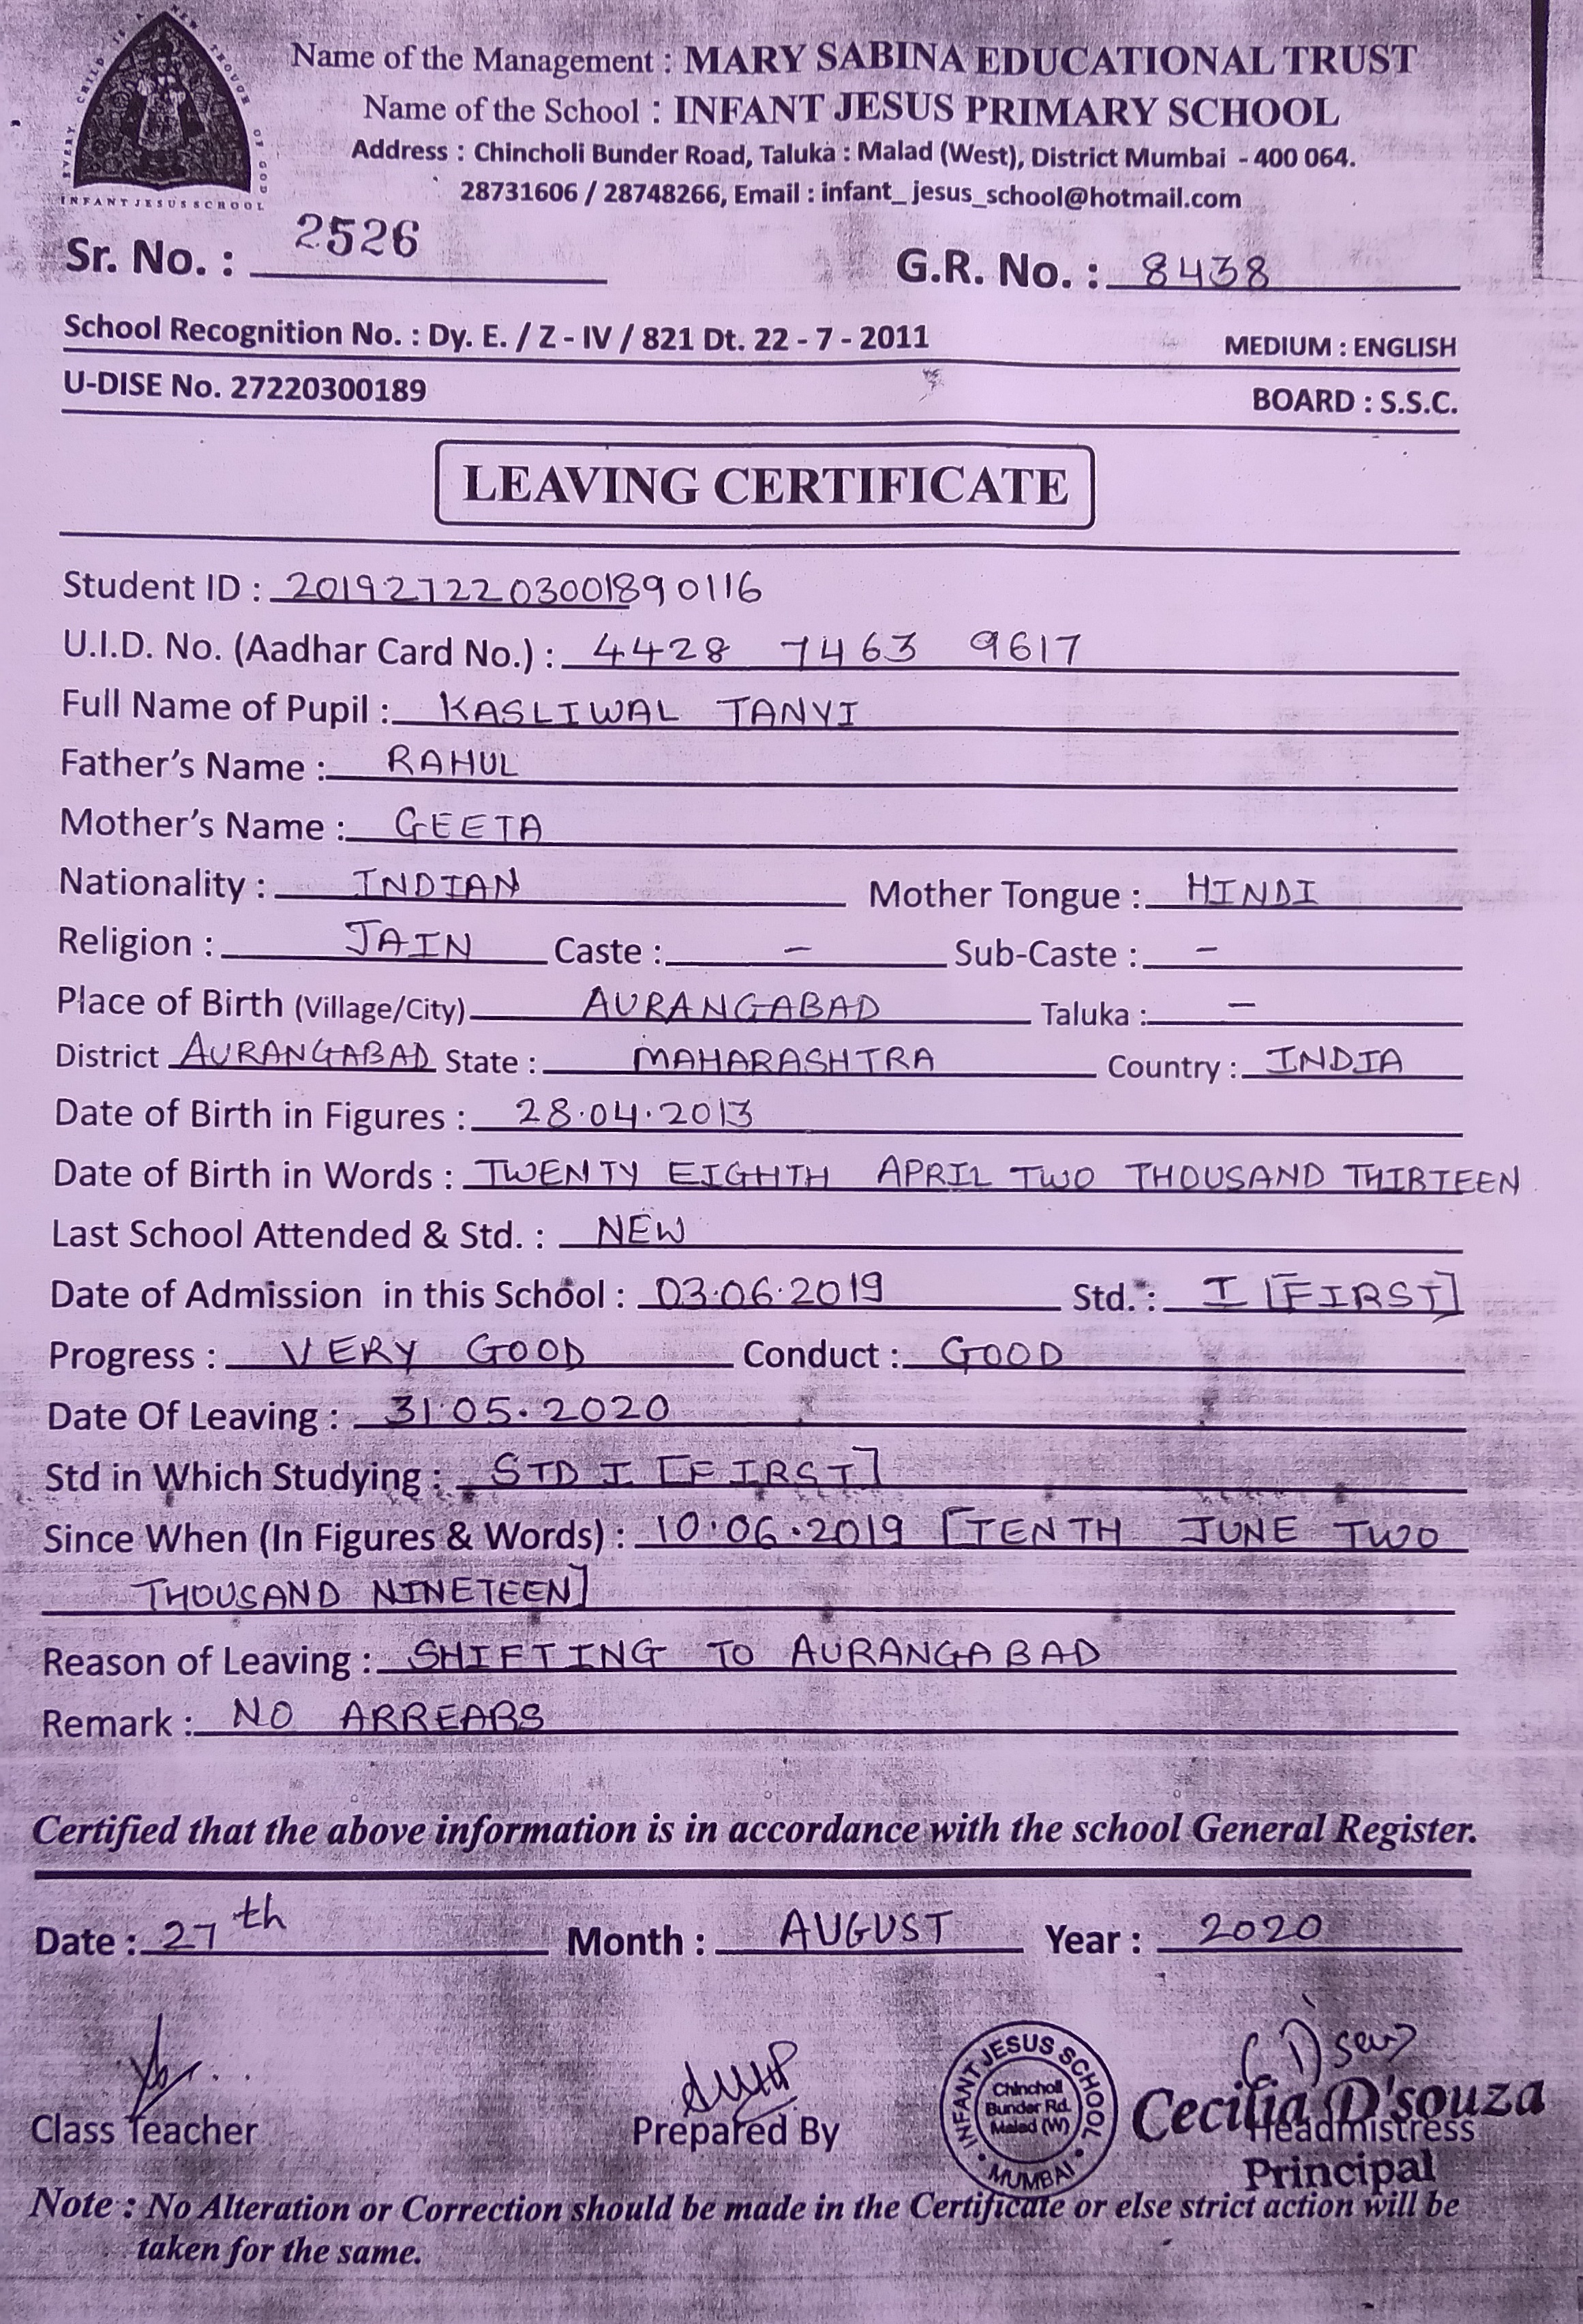 EVERY CHILD IS A NEW THOUGHT OF GOD
INFANT JESUS SCHOOL
Name of the Management : MARY SABINA EDUCATIONAL TRUST
Name of the School : INFANT JESUS PRIMARY SCHOOL
Address : Chincholi Bunder Road, Taluka : Malad (West), District Mumbai - 400 064.
28731606 / 28748266, Email : infant_jesus_school@hotmail.com
Sr. No. : 2526 G.R. No. : 8438
School Recognition No. : Dy. E. / Z - IV / 821 Dt. 22 - 7 - 2011 MEDIUM : ENGLISH
U-DISE No. 27220300189 BOARD : S.S.C.
LEAVING CERTIFICATE
Student ID : 2019272203001890116
U.I.D. No. (Aadhar Card No.) : 4428 7463 9617
Full Name of Pupil : KASLIWAL TANVI
Father's Name : RAHUL
Mother's Name : GEETA
Nationality : INDIAN Mother Tongue : HINDI
Religion : JAIN Caste : - Sub-Caste : -
Place of Birth (Village/City) AURANGABAD Taluka : -
District AURANGABAD State : MAHARASHTRA Country : INDIA
Date of Birth in Figures : 28.04.2013
Date of Birth in Words : TWENTY EIGHTH APRIL TWO THOUSAND THIRTEEN
Last School Attended & Std. : NEW
Date of Admission in this School : 03.06.2019 Std. : I [FIRST]
Progress : VERY GOOD Conduct : GOOD
Date Of Leaving : 31.05.2020
Std in Which Studying : STD I [FIRST]
Since When (In Figures & Words) : 10.06.2019 [TENTH JUNE TWO
THOUSAND NINETEEN]
Reason of Leaving : SHIFTING TO AURANGABAD
Remark : NO ARREARS
Certified that the above information is in accordance with the school General Register.
Date : 27th Month : AUGUST Year : 2020
INFANT JESUS SCHOOL
Chincholi
Bunder Rd.
Malad (W)
MUMBAI
Cecilia D'souza
Class Teacher Prepared By Headmistress
Principal
Note : No Alteration or Correction should be made in the Certificate or else strict action will be
taken for the same.